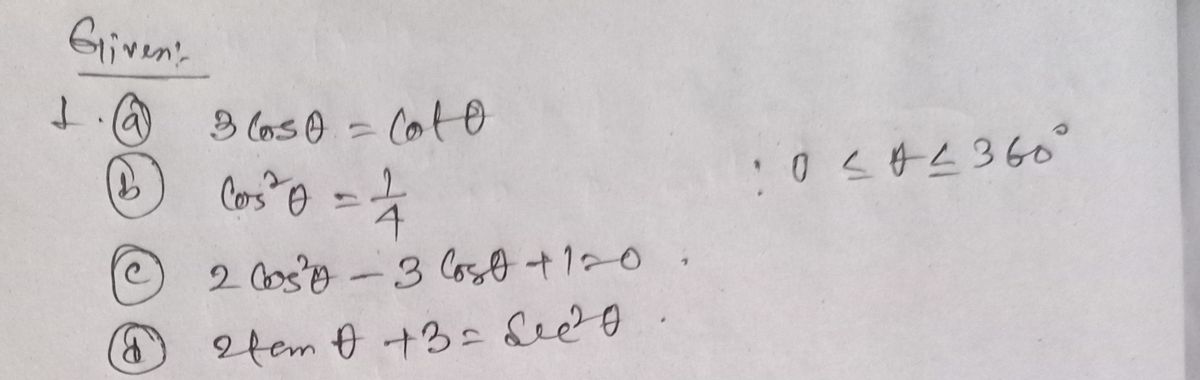 Given:-
1. (a) 3 Cosθ = Cot θ
: 0 ≤ θ ≤ 360°
(b) Cos²θ = 1/4
(c) 2 Cos²θ - 3 Cosθ + 1 = 0 .
(d) 2 tan θ + 3 = Sec²θ .